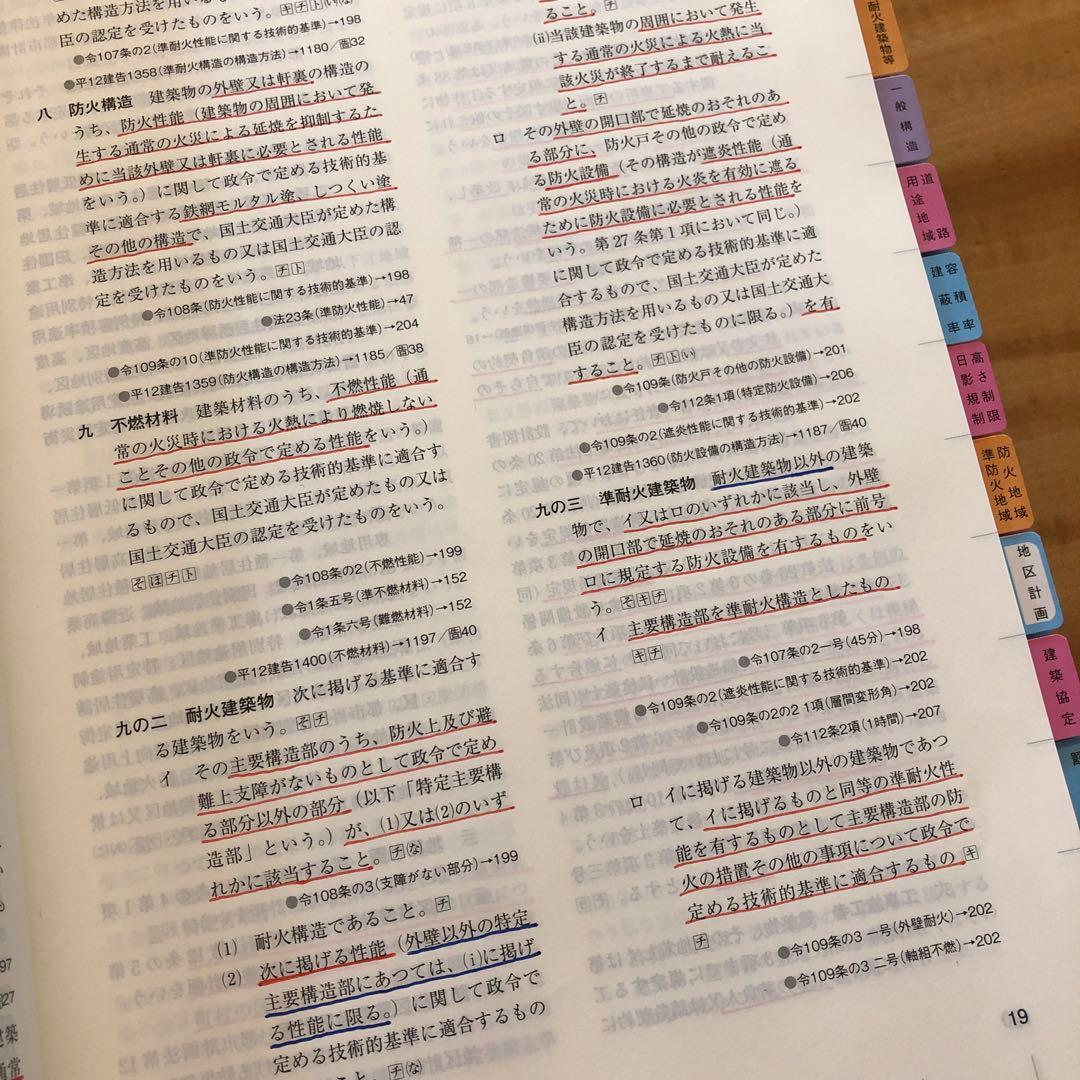 めた構造方法を用いるもの又は国土交通大
臣の認定を受けたものをいう。キチトい(な
●令107条の2(準耐火性能に関する技術的基準)→198
●平12建告1358(準耐火構造の構造方法)→1180/圕32
八 防火構造 建築物の外壁又は軒裏の構造の
うち、防火性能(建築物の周囲において発
生する通常の火災による延焼を抑制するた
めに当該外壁又は軒裏に必要とされる性能
をいう。)に関して政令で定める技術的基
準に適合する鉄網モルタル塗、しつくい塗
その他の構造で、国土交通大臣が定めた構
造方法を用いるもの又は国土交通大臣の認
定を受けたものをいう。チト
●令108条(防火性能に関する技術的基準)→198
●法23条(準防火性能)→47
●令109条の10(準防火性能に関する技術的基準)→204
●平12建告1359(防火構造の構造方法)→1185/圕38
九 不燃材料 建築材料のうち、不燃性能(通
常の火災時における火熱により燃焼しない
ことその他の政令で定める性能をいう。)
に関して政令で定める技術的基準に適合す
るもので、国土交通大臣が定めたもの又は
国土交通大臣の認定を受けたものをいう。
そほチト
●令108条の2(不燃性能)→199
●令1条五号(準不燃材料)→152
●令1条六号(難燃材料)→152
●平12建告1400(不燃材料)→1197/圕40
九の二 耐火建築物 次に掲げる基準に適合す
る建築物をいう。そチ
イ その主要構造部のうち、防火上及び避
難上支障がないものとして政令で定め
る部分以外の部分(以下「特定主要構
造部」という。)が、(1)又は(2)のいず
れかに該当すること。チ(な
●令108条の3(支障がない部分)→199
(1) 耐火構造であること。チ
(2) 次に掲げる性能(外壁以外の特定
主要構造部にあつては、(i)に掲げ
る性能に限る。)に関して政令で
定める技術的基準に適合するもの
こと。チ(な
ること。チ
(ii)当該建築物の周囲において発生
する通常の火災による火熱に当
該火災が終了するまで耐えるこ
と。チ
ロ その外壁の開口部で延焼のおそれのあ
る部分に、防火戸その他の政令で定め
る防火設備(その構造が遮炎性能(通
常の火災時における火炎を有効に遮る
ために防火設備に必要とされる性能を
いう。第27条第1項において同じ。)
に関して政令で定める技術的基準に適
合するもので、国土交通大臣が定めた
構造方法を用いるもの又は国土交通大
臣の認定を受けたものに限る。)を有
すること。チトい
●令109条(防火戸その他の防火設備)→201
●令112条1項(特定防火設備)→206
●令109条の2(遮炎性能に関する技術的基準)→202
●平12建告1360(防火設備の構造方法)→1187/圕40
九の三 準耐火建築物 耐火建築物以外の建築
物で、イ又はロのいずれかに該当し、外壁
の開口部で延焼のおそれのある部分に前号
ロに規定する防火設備を有するものをい
う。そキチ
イ 主要構造部を準耐火構造としたもの
キチ
●令107条の2一号(45分)→198
●令109条の2(遮炎性能に関する技術的基準)→202
●令109条の2の2 1項(層間変形角)→202
●令112条2項(1時間)→207
ロ イに掲げる建築物以外の建築物であつ
て、イに掲げるものと同等の準耐火性
能を有するものとして主要構造部の防
火の措置その他の事項について政令で
定める技術的基準に適合するものキ
チ
●令109条の3 一号(外壁耐火)→202
●令109条の3 二号(軸組不燃)→202
19
耐火建築物等
一般構造
道路
用途地域
容積率
建蔽率
高さ制限
日影規制
防火地域
準防火地域
地区計画
建築協定